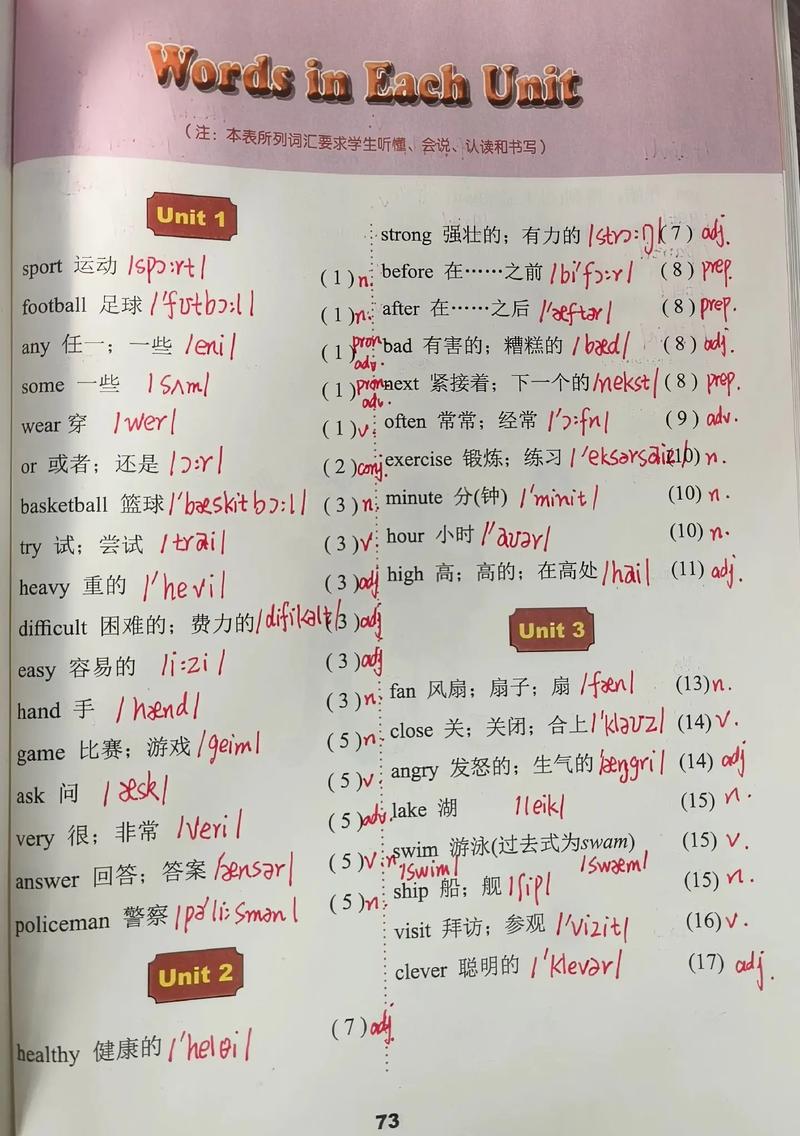 Words in Each Unit
（注：本表所列词汇要求学生听懂、会说、认读和书写）
Unit 1
sport 运动 /spɔ:rt/ (1) n.
football 足球 /'fʊtbɔ:l/ (1) n.
any 任一；一些 /eni/ (1) pron. adv.
some 一些 /sʌm/ (1) pron. adv.
wear 穿 /wer/ (1) v.
or 或者；还是 /ɔ:r/ (2) conj.
basketball 篮球 /'bæskitbɔ:l/ (3) n.
try 试；尝试 /trai/ (3) v.
heavy 重的 /'hevi/ (3) adj
difficult 困难的；费力的 /difikəlt/ (3) adj
easy 容易的 /i:zi/ (3) adj
hand 手 /hænd/ (3) n.
game 比赛；游戏 /geim/ (5) n.
ask 问 /æsk/ (5) v.
very 很；非常 /veri/ (5) adv.
answer 回答；答案 /ænsər/ (5) v. n.
policeman 警察 /pə'li:smən/ (5) n.
Unit 2
healthy 健康的 /'helθi/ (7) adj.
strong 强壮的；有力的 /strɔ:ŋ/ (7) adj.
before 在……之前 /bi'fɔ:r/ (8) prep.
after 在……之后 /'æftər/ (8) prep.
bad 有害的；糟糕的 /bæd/ (8) adj.
next 紧接着；下一个的 /nekst/ (8) prep.
often 常常；经常 /'ɔ:fn/ (9) adv.
exercise 锻炼；练习 /'eksərsaiz/ (10) n.
minute 分(钟) /'minit/ (10) n.
hour 小时 /'aʊər/ (10) n.
high 高；高的；在高处 /hai/ (11) adj.
Unit 3
fan 风扇；扇子；扇 /fæn/ (13) n.
close 关；关闭；合上 /'kləʊz/ (14) v.
angry 发怒的；生气的 /æŋgri/ (14) adj
lake 湖 /leik/ (15) n.
swim 游泳(过去式为swam) (15) v.
/swim/ /swæm/
ship 船；舰 /ʃip/ (15) n.
visit 拜访；参观 /'vizit/ (16) v.
clever 聪明的 /'klevər/ (17) adj.
73